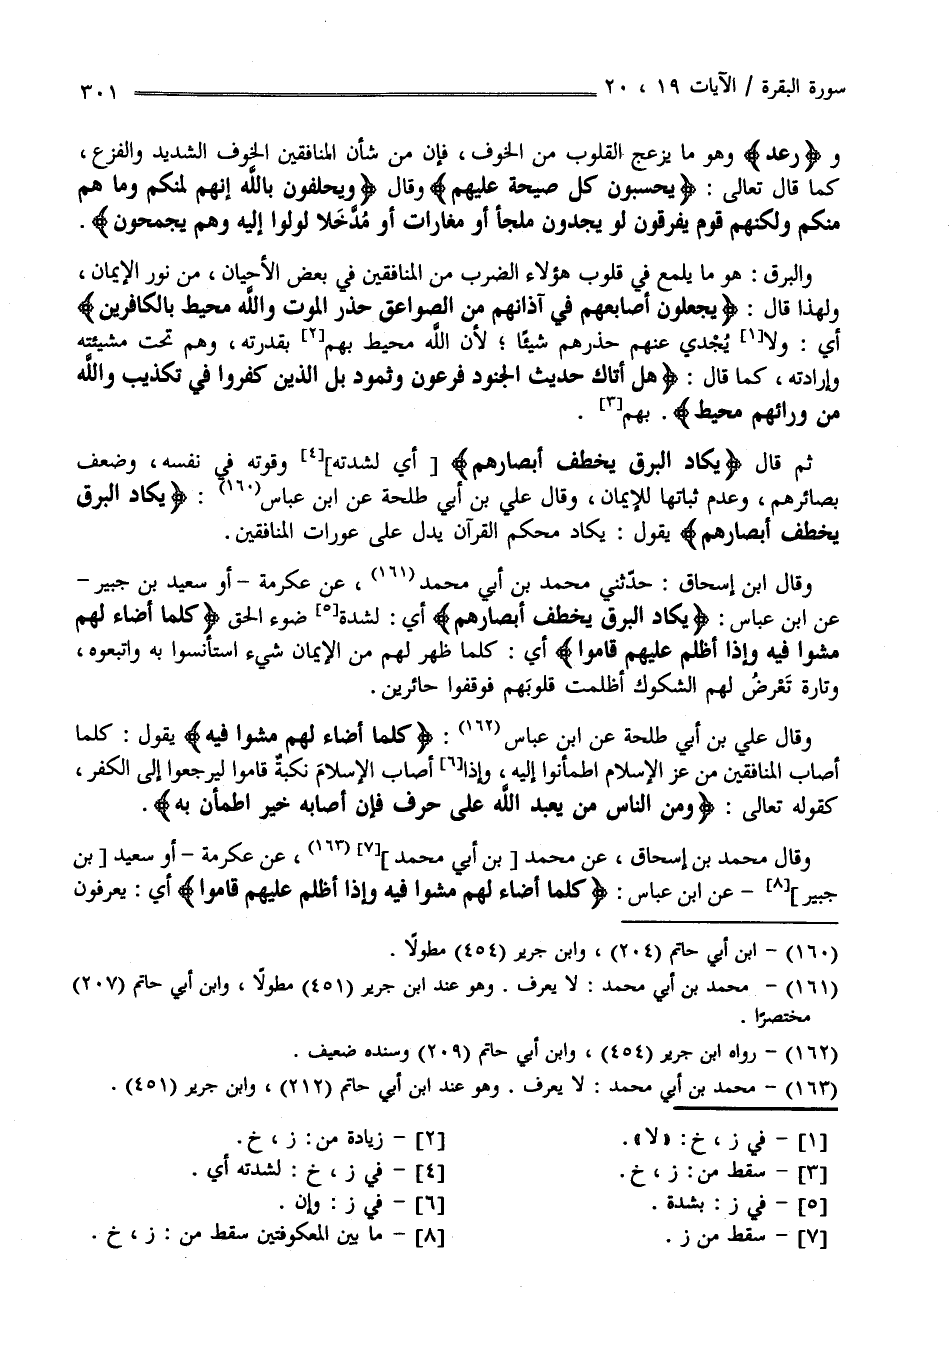 سورة البقرة / الآيات ١٩ ، ٢٠ ٣٠١
و ﴿رعد﴾ وهو ما يزعج القلوب من الخوف ، فإن من شأن المنافقين الخوف الشديد والفزع ،
كما قال تعالى : ﴿يحسبون كل صيحة عليهم﴾ وقال ﴿ويحلفون بالله إنهم لمنكم وما هم
منكم ولكنهم قوم يفرقون لو يجدون ملجأ أو مغارات أو مُدَّخَلا لولوا إليه وهم يجمحون﴾ .
والبرق : هو ما يلمع في قلوب هؤلاء الضرب من المنافقين في بعض الأحيان ، من نور الإيمان ،
ولهذا قال : ﴿يجعلون أصابعهم في آذانهم من الصواعق حذر الموت والله محيط بالكافرين﴾
أي : ولا[١] يُجْدي عنهم حذرهم شيئًا ؛ لأن الله محيط بهم[٢] بقدرته ، وهم تحت مشيئته
وإرادته ، كما قال : ﴿هل أتاك حديث الجنود فرعون وثمود بل الذين كفروا في تكذيب والله
من ورائهم محيط﴾ . بهم[٣] .
ثم قال ﴿يكاد البرق يخطف أبصارهم﴾ [ أي لشدته][٤] وقوته في نفسه ، وضعف
بصائرهم ، وعدم ثباتها للإيمان ، وقال علي بن أبي طلحة عن ابن عباس(١٦٠) : ﴿يكاد البرق
يخطف أبصارهم﴾ يقول : يكاد محكم القرآن يدل على عورات المنافقين.
وقال ابن إسحاق : حدّثني محمد بن أبي محمد(١٦١) ، عن عكرمة -أو سعيد بن جبير-
عن ابن عباس : ﴿يكاد البرق يخطف أبصارهم﴾ أي : لشدة[٥] ضوء الحق ﴿كلما أضاء لهم
مشوا فيه وإذا أظلم عليهم قاموا﴾ أي : كلما ظهر لهم من الإيمان شيء استأنسوا به واتبعوه ،
وتارة تَعْرِضُ لهم الشكوك أظلمت قلوبَهم فوقفوا حائرين .
وقال علي بن أبي طلحة عن ابن عباس(١٦٢) : ﴿كلما أضاء لهم مشوا فيه﴾ يقول : كلما
أصاب المنافقين من عز الإسلام اطمأنوا إليه ، وإذا[٦] أصاب الإسلامَ نكبةٌ قاموا ليرجعوا إلى الكفر ،
كقوله تعالى : ﴿ومن الناس من يعبد الله على حرف فإن أصابه خير اطمأن به﴾ .
وقال محمد بن إسحاق ، عن محمد [ بن أبي محمد ][٧](١٦٣) ، عن عكرمة -أو سعيد [ بن
جبير ][٨] - عن ابن عباس : ﴿كلما أضاء لهم مشوا فيه وإذا أظلم عليهم قاموا﴾ أي : يعرفون
(١٦٠) - ابن أبي حاتم (٢٠٤) ، وابن جرير (٤٥٤) مطولًا .
(١٦١) - محمد بن أبي محمد : لا يعرف . وهو عند ابن جرير (٤٥١) مطولًا ، وابن أبي حاتم (٢٠٧)
مختصرًا .
(١٦٢) - رواه ابن جرير (٤٥٤) ، وابن أبي حاتم (٢٠٩) وسنده ضعيف .
(١٦٣) - محمد بن أبي محمد : لا يعرف . وهو عند ابن أبي حاتم (٢١٢) ، وابن جرير (٤٥١) .
[١] - في ز ، خ : «لا» . [٢] - زيادة من : ز ، خ .
[٣] - سقط من : ز ، خ . [٤] - في ز ، خ : لشدته أي .
[٥] - في ز : بشدة . [٦] - في ز : وإن .
[٧] - سقط من ز . [٨] - ما بين المعكوفتين سقط من : ز ، خ .